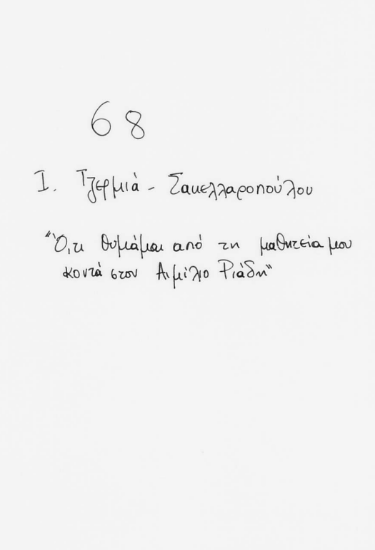 68
Ι. Τζερμιά - Σακελλαροπούλου
"Ό,τι θυμάμαι από τη μαθητεία μου
κοντά στον Αιμίλιο Ριάδη"